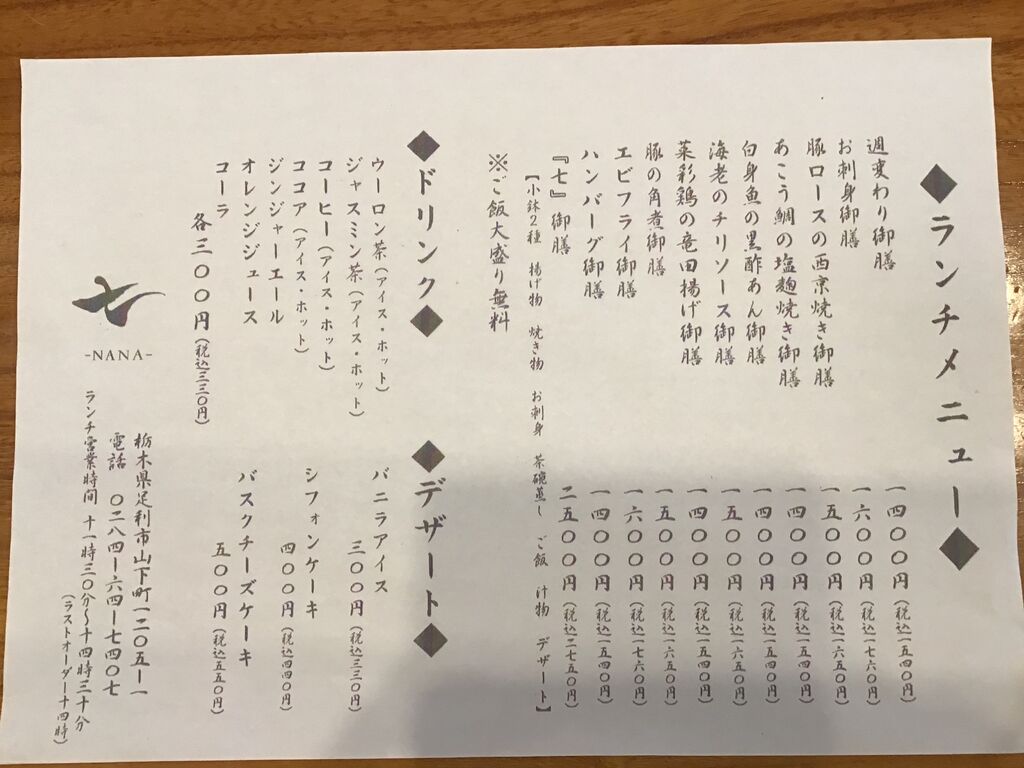 ◆ランチメニュー◆
週変わり御膳 一四〇〇円(税込一五四〇円)
お刺身御膳 一六〇〇円(税込一七六〇円)
豚ロースの西京焼き御膳 一五〇〇円(税込一六五〇円)
あこう鯛の塩麹焼き御膳 一四〇〇円(税込一五四〇円)
白身魚の黒酢あん御膳 一四〇〇円(税込一五四〇円)
海老のチリソース御膳 一五〇〇円(税込一六五〇円)
菜彩鶏の竜田揚げ御膳 一四〇〇円(税込一五四〇円)
豚の角煮御膳 一五〇〇円(税込一六五〇円)
エビフライ御膳 一六〇〇円(税込一七六〇円)
ハンバーグ御膳 一四〇〇円(税込一五四〇円)
『七』御膳 二五〇〇円(税込二七五〇円)
【小鉢2種 揚げ物 焼き物 お刺身 茶碗蒸し ご飯 汁物 デザート】
※ご飯大盛り無料
◆ドリンク◆
ウーロン茶(アイス・ホット)
ジャスミン茶(アイス・ホット)
コーヒー(アイス・ホット)
ココア(アイス・ホット)
ジンジャーエール
オレンジジュース
コーラ
各三〇〇円(税込三三〇円)
◆デザート◆
バニラアイス
三〇〇円(税込三三〇円)
シフォンケーキ
四〇〇円(税込四四〇円)
バスクチーズケーキ
五〇〇円(税込五五〇円)
七
-NANA-
栃木県足利市山下町一二〇五ー一
電話 〇二八四ー六四ー七四〇七
ランチ営業時間 十一時三〇分〜十四時三十分
(ラストオーダー十四時)